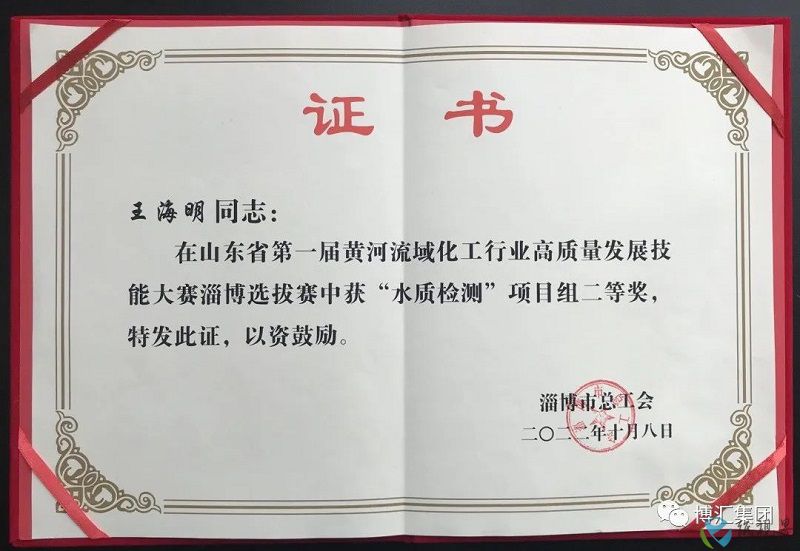 证书
王海明同志：
在山东省第一届黄河流域化工行业高质量发展技
能大赛淄博选拔赛中获“水质检测”项目组二等奖，
特发此证，以资鼓励。
淄博市总工会
二〇二二年十月八日
博汇集团